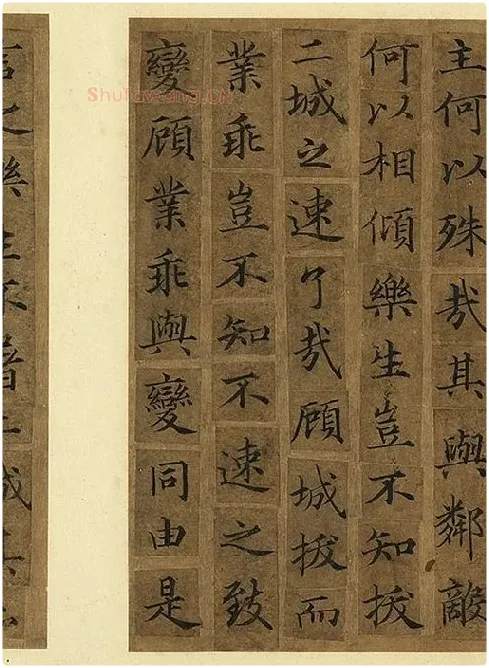 主何以殊哉其與鄰敵
何以相傾樂生豈不知拔
二城之速了哉顧城拔而
業乖豈不知不速之致
變顧業乖與變同由是
言之樂生不屠二城其
Shufawang.CN